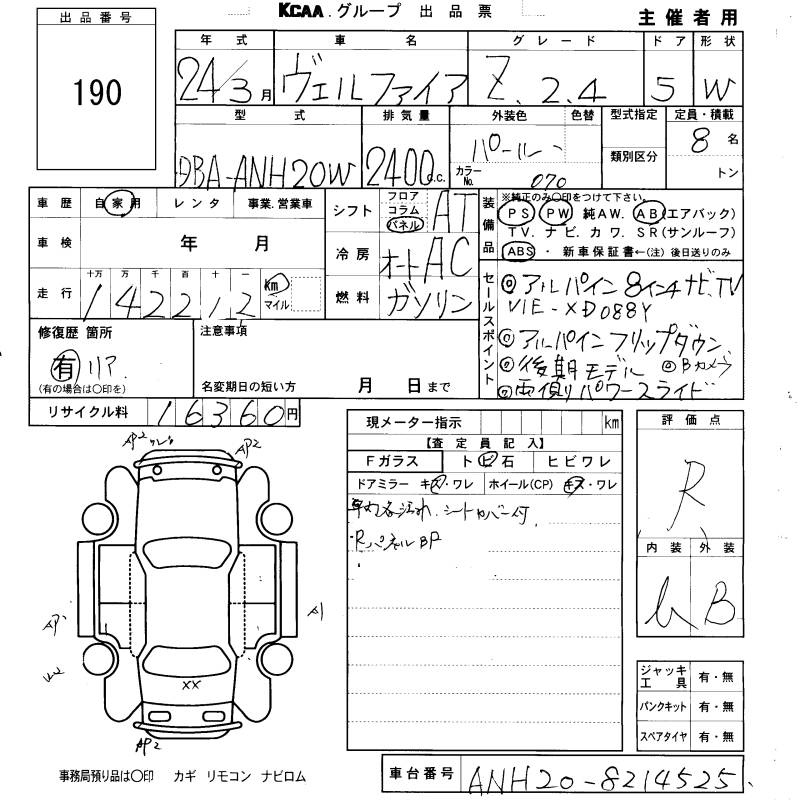 KCAA.グループ 出品票
主催者用
出品番号
190
年式 車名 グレード ドア 形状
24/3月 ヴェルファイア Z. 2.4 5 W
型式 排気量 外装色 色替 型式指定 定員・積載
DBA-ANH20W 2400c.c. パール 8名
カラーNo. 070 類別区分 トン
車歴 自家用 レンタ 事業.営業車
シフト フロア コラム パネル AT
装備品 ※純正のみ○印をつけて下さい。
PS PW 純AW. AB(エアバック)
TV. ナビ. カワ. SR(サンルーフ)
ABS・ 新車保証書←(注) 後日送りのみ
車検 年 月
冷房 オートAC
走行 十万 万 千 百 十 一
142212 km マイル
燃料 ガソリン
セールスポイント
◎アルパイン8インチナビ.TV
VIE-XD088Y
◎アルパインフリップダウン
◎後期モデル ◎Bカメラ
◎両側パワースライド
修復歴 箇所
有 リア
(有の場合は○印を)
注意事項
名変期日の短い方 月 日まで
リサイクル料 16360円
現メーター指示 km
【査定員記入】
Fガラス ト ビ 石 ヒビワレ
ドアミラー キズ・ワレ ホイール(CP) キズ・ワレ
シートカバー付
・Rパネル BP
評価点
R
内装 外装
B
AP2
AP2
A1
AP
XX
AP2
ジャッキ工具 有・無
パンクキット 有・無
スペアタイヤ 有・無
事務局預り品は○印 カギ リモコン ナビロム
車台番号 ANH20-8214525